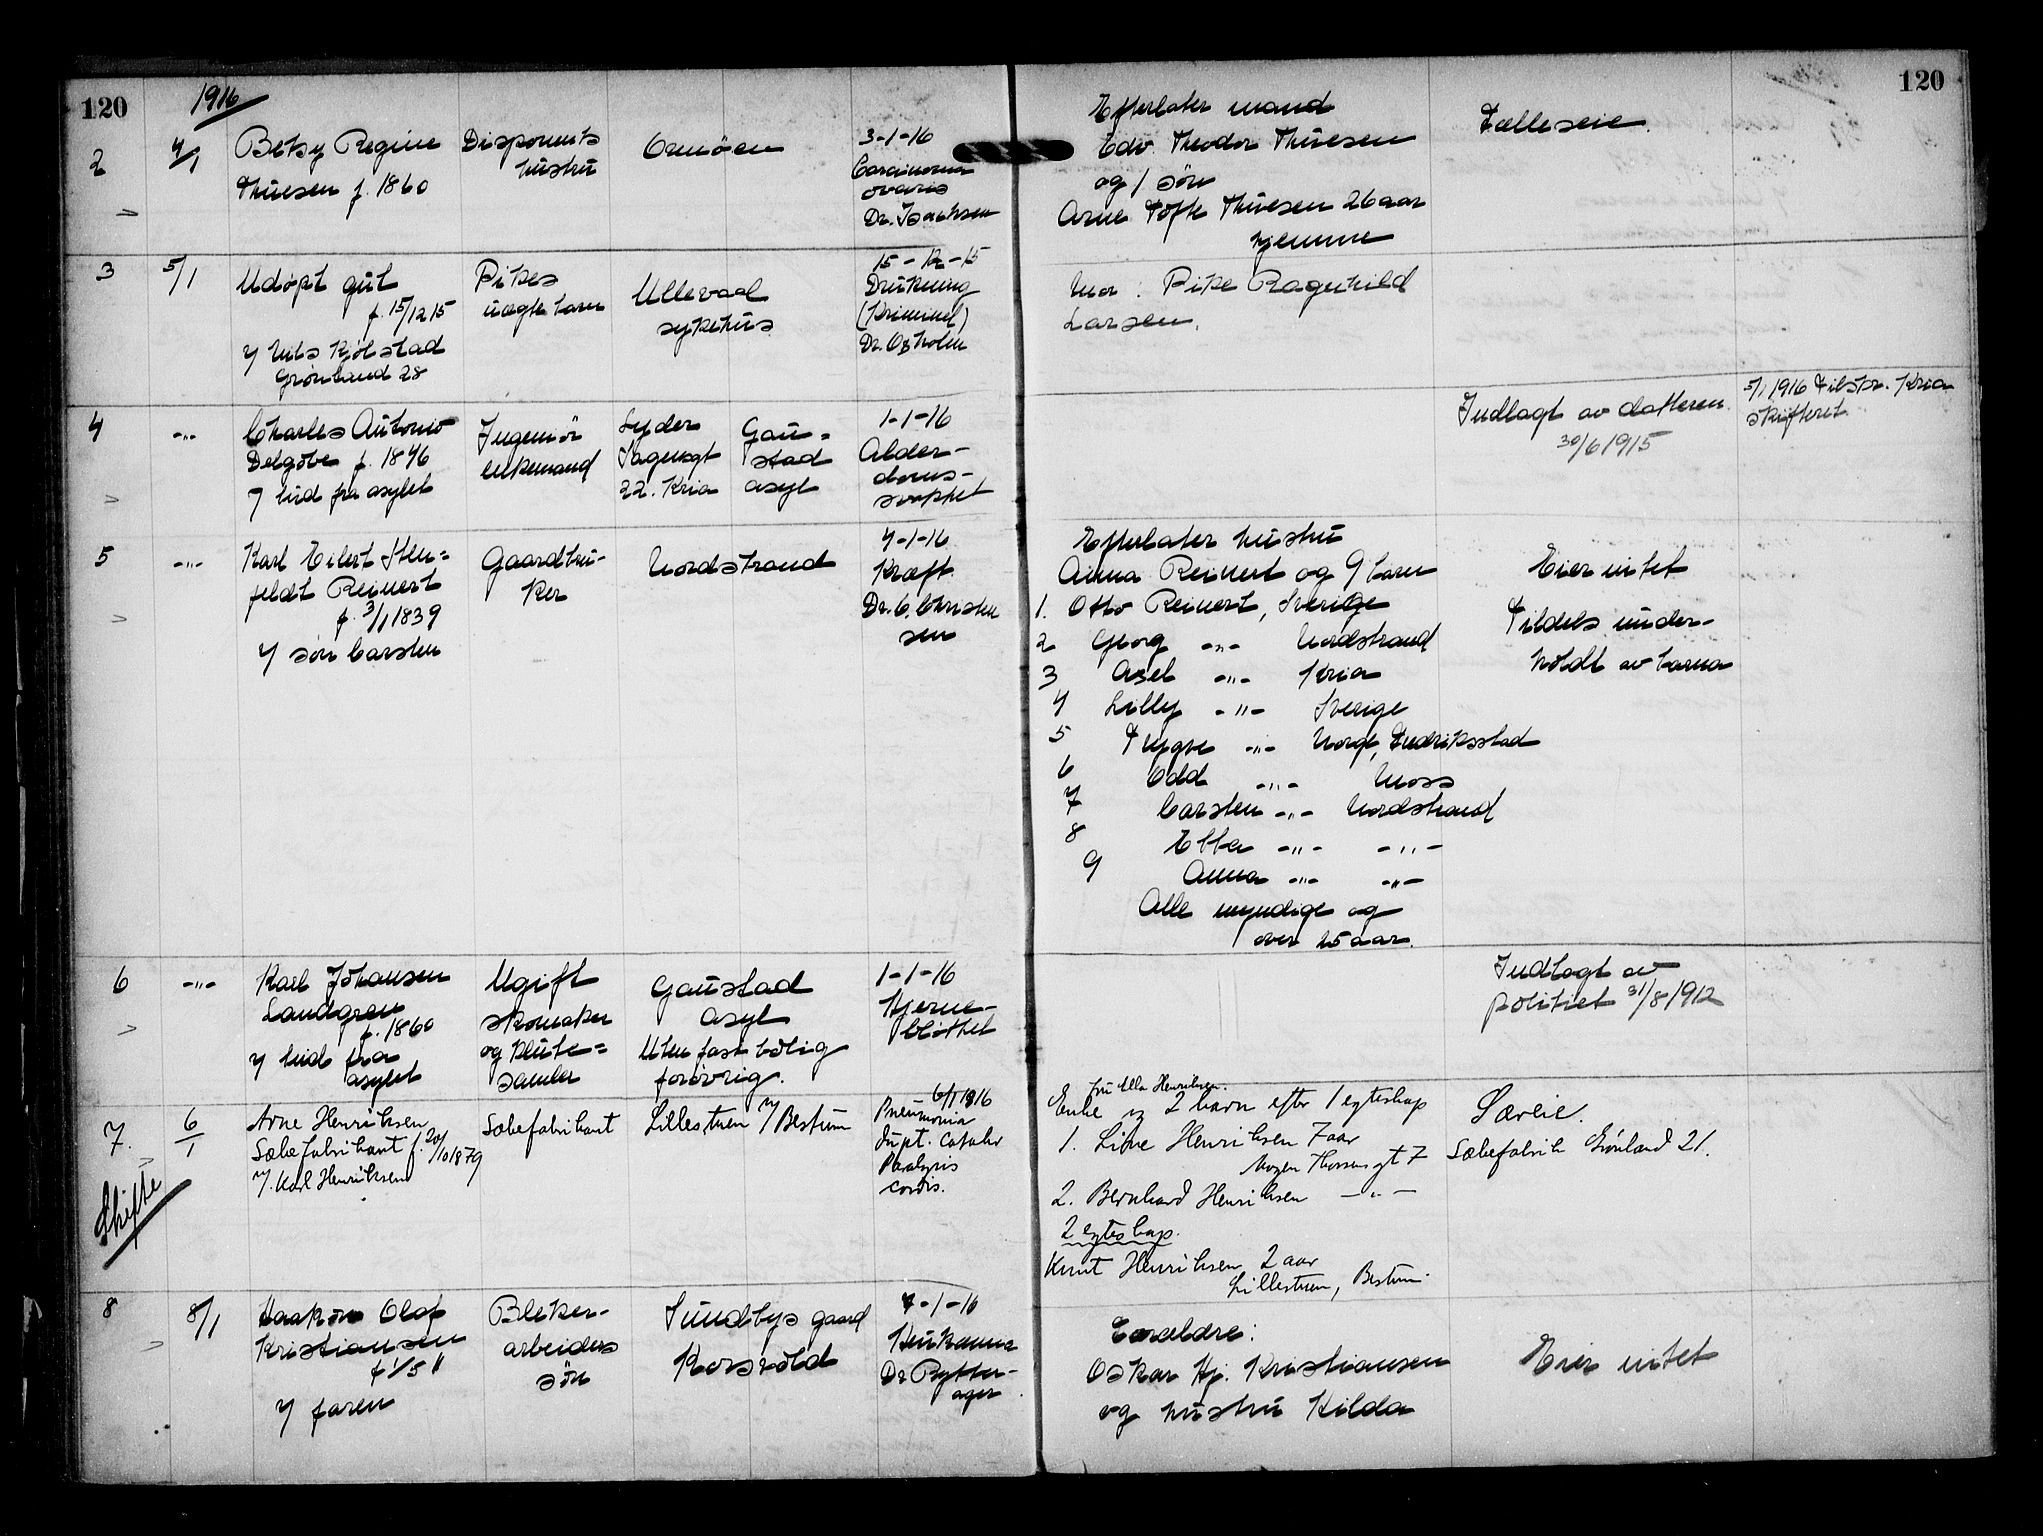 120
1916
120
2
4/1
Betzy Regine
Thuesen f. 1860
Disponents
hustru
Ormöen
3-1-16
Carcinoma
ovaris
Dr. Isachsen
Efterlater mand
Edv. Theodor Thuesen
og 1 sön
Arne Tofte Thuesen 26 aar
hjemme
Fælleseie
3
5/1
Udöpt gut
f. 15/12 15
v/ Nils Kjölstad
Grönland 28
Pikes
uegte barn
Ullevaal
sykehus
15-12-15
Drukning
(Kriminel)
Mor: Pike Ragnhild
Larsen.
4
-"-
Charles Antonio
Delgobe f. 1846
v/ bud fra asylet
Ingeniör
enkemand
Lyder
Sagensgt
22. Kria
Gau=
stad
asyl
1-1-16
Alder-
doms-
svakhet
Indlagt av datteren
30/6 1915
5/1 1916 Tilskr. Kria
skifteret
5
-"-
Karl Eilert Sten=
feldt Reinert
f. 3/1 1839
v/ sön Carsten
Gaardbru-
ker
Nordstrand
4-1-16
Kræft
Dr. C. Christen
sen
Efterlater hustru
Anna Reinert og 9 barn
1. Otto Reinert, Sverige
2 Georg -"- Nordstrand
3 Axel -"- Kria
4 Lilly -"- Sverige
5 Trygve -"- Norge, Fredriksstad
6 Odd -"- Moss
7 Carsten -"- Nordstrand
8 Ebba -"- -"-
9 Anna -"- -"-
Alle myndige og
over 25 aar.
Eier intet
Tildels under-
holdt av barna
6
-"-
Karl Johansen
Landgren
f. 1860
v/ bud fra
asylet
Ugift
skomaker
og klute=
samler
Gaustad
asyl
Uten fast bolig
forövrig.
1-1-16
Hjerne-
blöthet
Indlagt av
politiet 31/8 1912
7.
Skifte
6/1
Arne Henriksen
Sæbefabrikant f. 20/10 1879
v/ Karl Henriksen
Sæbefabrikant
Lillestuen v/ Bestum
6/1 1916
Pneumonia
Dupt. Catahr
Paralysis
cordis.
fru Ella Henriksen.
Enke og 2 barn efter 1 egteskap
1. Live Henriksen 7 aar
Mogen Thorsens gt 7
2. Bernhard Henriksen -"-
2 egteskap.
Knut Henriksen 2 aar
Lillestuen, Bestum.
Særeie.
Sæbefabrik Grönland 21.
8
8/1
Haakon Olaf
Kristiansen
f 1/5 11
v/ faren
Bleker-
arbeiders
sön
Sundbys gaard
Korsvold
7-1-16
Leukæmia
Dr Rytter-
ager
Forældre:
Oskar Hj. Kristiansen
og hustru Hilda
Eier intet